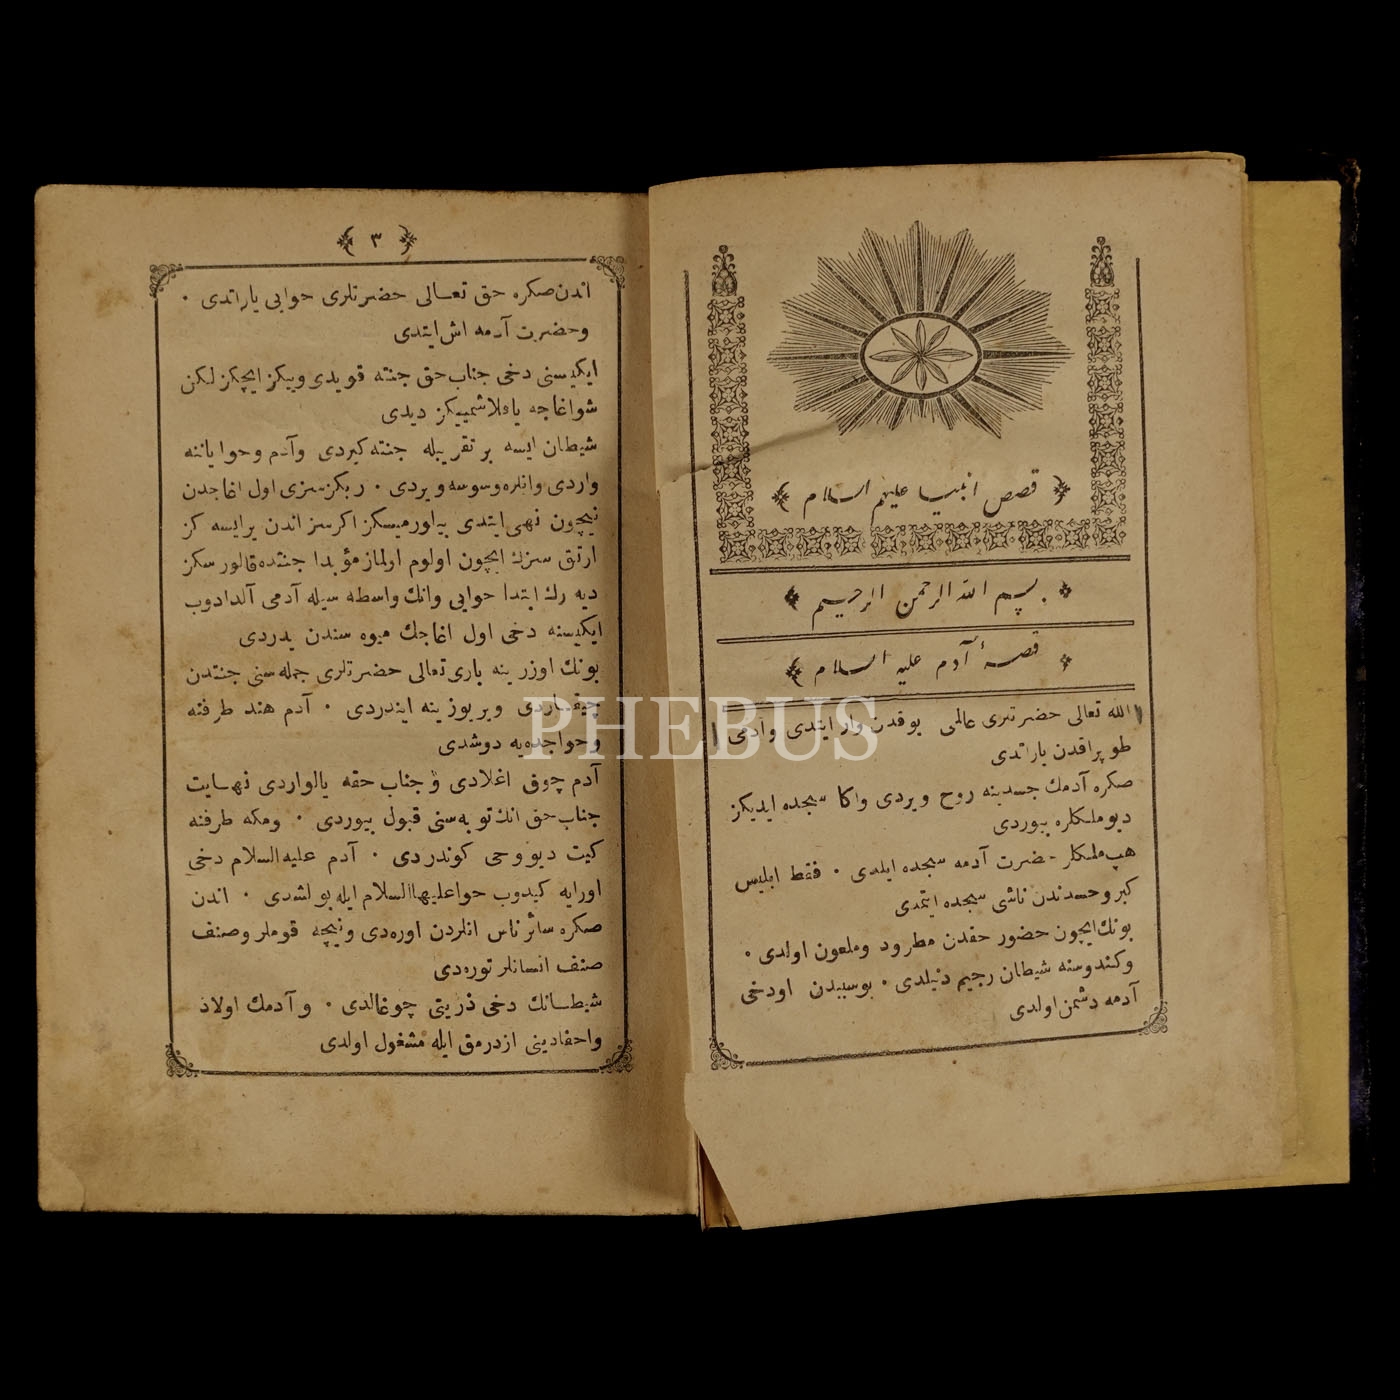 قصص انبيا عليهم السلام
بسم الله الرحمن الرحيم
قصۀ آدم عليه السلام
الله تعالى حضرتلرى عالمى يوقدن وار ايتدى وآدمى
طوپراقدن ياراتدى
صكره آدمك جسدينه روح ويردى واكا سجده ايديكز
ديو ملكلره بيوردى
هپ ملكلر حضرت آدمه سجده ايلدى ٠ فقط ابليس
كبر وحسدندن ناشى سجده ايتمدى
بونك ايچون حضور حقدن مطرود وملعون اولدى ٠
وكندوسنه شيطان رجيم دنيلدى ٠ بوسببدن اودخى
آدمه دشمن اولدى
٣
اندن صكره حق تعالى حضرتلرى حوايى ياراتدى ٠
وحضرت آدمه اش ايتدى
ايكيسنى دخى جناب حق جنته قويدى وييكز ايچكز لكن
شو اغاجه ياقلاشمييكز ديدى
شيطان ايسه بر تقريبله جنته كيردى وآدم وحوا ياننه
واردى وانلره وسوسه ويردى ٠ ربكز سزى اول اغاجدن
نيچون نهى ايتدى بيلورميسكز اكر سز اندن يرايسه كز
ارتق سزك ايچون اولوم اولماز مؤبدا جنتده قالورسكز
ديه رك ابتدا حوايى وانك واسطه سيله آدمى آلدادوب
ايكيسنه دخى اول اغاجك ميوه سندن يدردى
بونك اوزرينه بارى تعالى حضرتلرى جمله سنى جنتدن
چيقاردى وير يوزينه ايندردى ٠ آدم هند طرفنه
وحوا جده يه دوشدى
آدم چوق اغلادى و جناب حقه يالواردى نهايت
جناب حق انك توبه سنى قبول بيوردى ٠ ومكه طرفنه
كيت ديو وحى كوندردى ٠ آدم عليه السلام دخى
اورايه كيدوب حوا عليها السلام ايله بولشدى ٠ اندن
صكره سائر ناس انلردن اوره دى ونيچه قوملر وصنف
صنف انسانلر توره دى
شيطانك دخى ذريتى چوغالدى ٠ و آدمك اولاد
واحفادينى ازدرمق ايله مشغول اولدى
PHEBUS